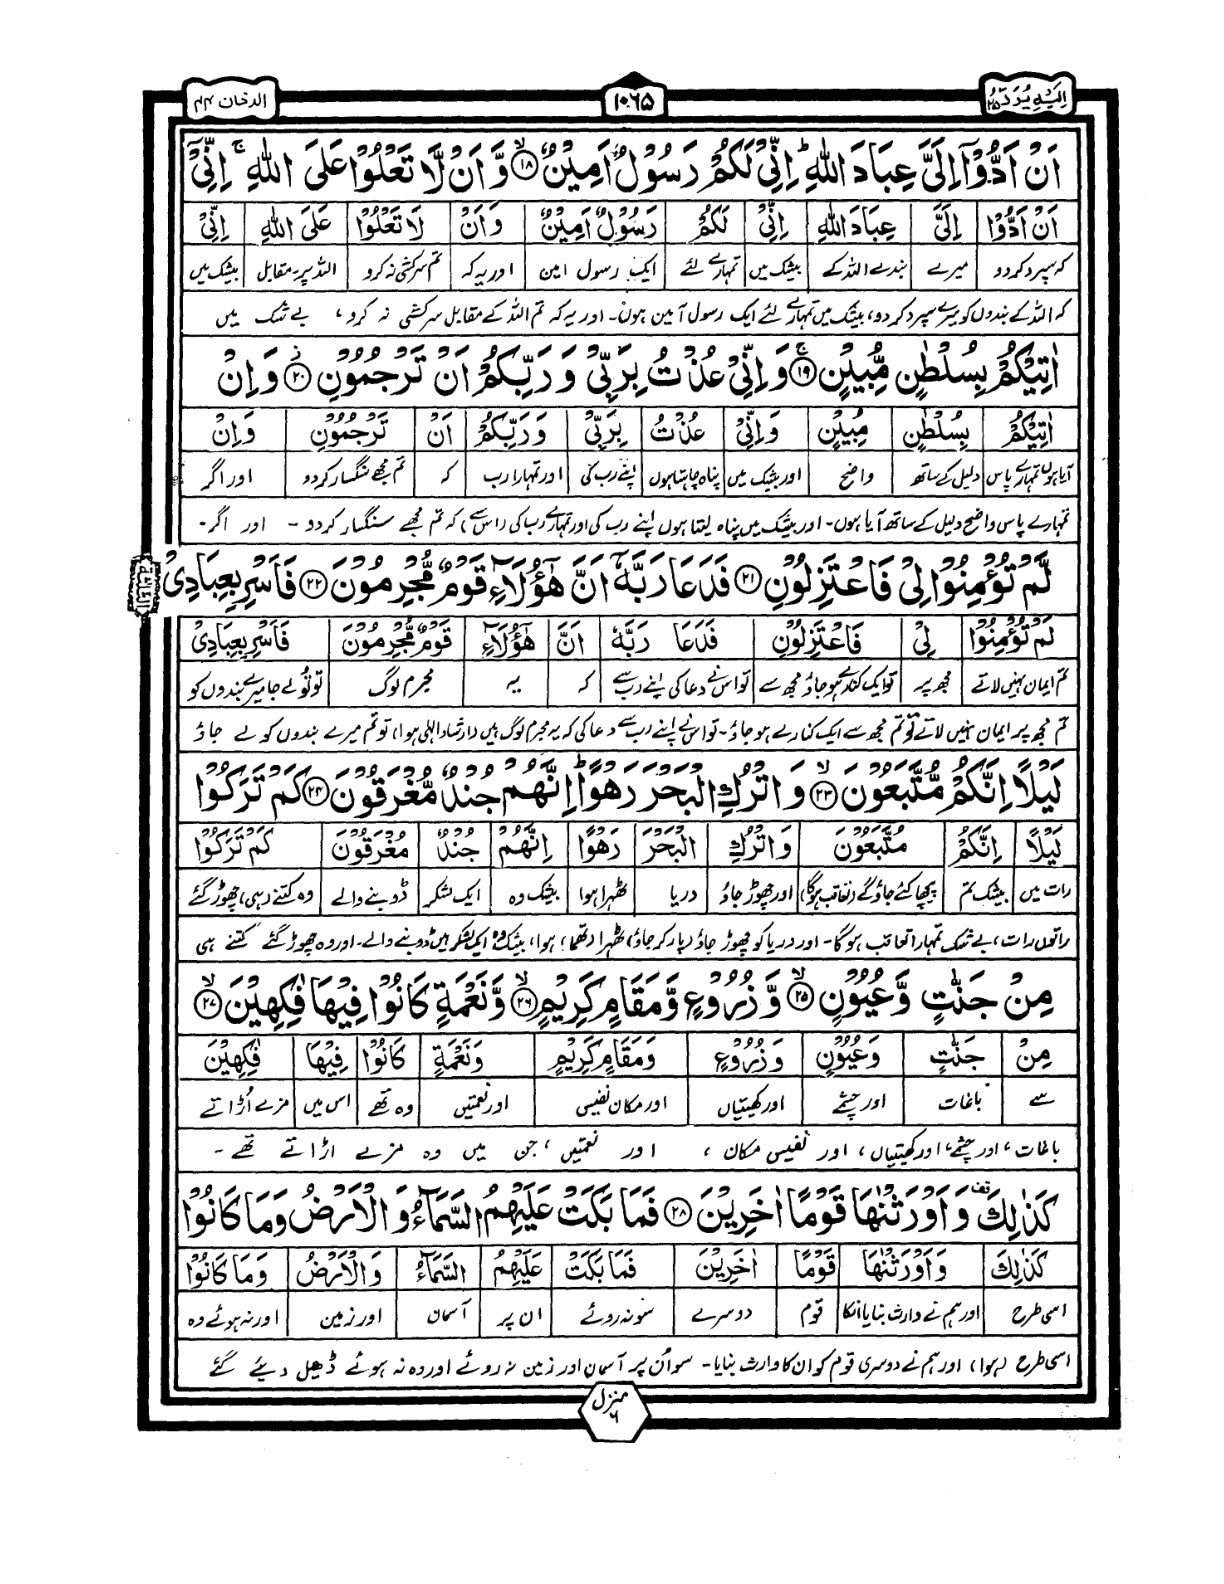 الدخان ۴۴
۱۰۶۵
اِلَيْهِ يُرَدُّ ۲۵
اَنْ اَدُّوْۤا اِلَیَّ عِبَادَ اللّٰهِؕ اِنِّیْ لَكُمْ رَسُوْلٌ اَمِیْنٌۙ۝۱۸ وَّ اَنْ لَّا تَعْلُوْا عَلَی اللّٰهِۚ اِنِّیْۤ
اَنْ اَدُّوْۤا | اِلَیَّ | عِبَادَ اللّٰهِ | اِنِّیْ | لَكُمْ | رَسُوْلٌ اَمِیْنٌ | وَاَنْ | لَا تَعْلُوْا | عَلَی اللّٰهِ | اِنِّیْ
کہ سپرد کردو | میرے | بندے اللہ کے | بیشک میں | تمہارے لئے | ایک رسول امین | اور یہ کہ | تم سرکشی نہ کرو | اللہ پر۔مقابل | بیشک میں
کہ اللہ کے بندوں کو میرے سپرد کردو، بیشک میں تمہارے لئے ایک رسول امین ہوں۔ اور یہ کہ تم اللہ کے مقابل سرکشی نہ کرو، بے شک میں
اٰتِیْكُمْ بِسُلْطٰنٍ مُّبِیْنٍۚ۝۱۹ وَ اِنِّیْ عُذْتُ بِرَبِّیْ وَ رَبِّكُمْ اَنْ تَرْجُمُوْنِؗ۝۲۰ وَ اِنْ
اٰتِیْكُمْ | بِسُلْطٰنٍ | مُبِیْنٍ | وَاِنِّیْ | عُذْتُ | بِرَبِّیْ | وَرَبِّكُمْ | اَنْ | تَرْجُمُوْنِ | وَاِنْ
آیا ہوں تمہارے پاس | دلیل کے ساتھ | واضح | اور بیشک میں | پناہ چاہتا ہوں | اپنے رب کی | اور تمہارا رب | کہ | تم مجھے سنگسار کردو | اور اگر
تمہارے پاس واضح دلیل کے ساتھ آیا ہوں۔ اور بیشک میں پناہ لیتا ہوں اپنے رب کی اور تمہارے رب کی (اس سے) کہ تم مجھے سنگسار کردو ۔ اور اگر۔
لَّمْ تُؤْمِنُوْا لِیْ فَاعْتَزِلُوْنِ۝۲۱ فَدَعَا رَبَّهٗۤ اَنَّ هٰۤؤُلَآءِ قَوْمٌ مُّجْرِمُوْنَ۝۲۲ فَاَسْرِ بِعِبَادِیْ
لَمْ تُؤْمِنُوْا | لِیْ | فَاعْتَزِلُوْنِ | فَدَعَا رَبَّهٗ | اَنَّ | هٰۤؤُلَآءِ | قَوْمٌ مُّجْرِمُوْنَ | فَاَسْرِ بِعِبَادِیْ
تم ایمان نہیں لاتے | مجھ پر | تو ایک کنارے ہو جاؤ مجھ سے | تو اس نے دعا کی اپنے رب سے | کہ | یہ | مجرم لوگ | تو تُو لے جا میرے بندوں کو
تم مجھ پر ایمان نہیں لاتے تو تم مجھ سے ایک کنارے ہو جاؤ۔ تو اس نے اپنے رب سے دعا کی کہ یہ مجرم لوگ ہیں (ارشاد الٰہی ہوا) تو تم میرے بندوں کو لے جاؤ
لَیْلًا اِنَّكُمْ مُّتَّبَعُوْنَۙ۝۲۳ وَ اتْرُكِ الْبَحْرَ رَهْوًاؕ اِنَّهُمْ جُنْدٌ مُّغْرَقُوْنَ۝۲۴ كَمْ تَرَكُوْا
لَیْلًا | اِنَّكُمْ | مُتَّبَعُوْنَ | وَاتْرُكِ | الْبَحْرَ | رَهْوًا | اِنَّهُمْ | جُنْدٌ | مُغْرَقُوْنَ | كَمْ تَرَكُوْا
رات میں | بیشک تم | پیچھا کئے جاؤگے (تعاقب ہوگا) | اور چھوڑ جاؤ | دریا | ٹھہرا ہوا | بیشک وہ | ایک لشکر | ڈوبنے والے | وہ کتنے (ہی) چھوڑ گئے
راتوں رات، بے شک تمہارا تعاقب ہوگا۔ اور دریا کو چھوڑ جاؤ (پار کر جاؤ) ٹھہرا (تھما) ہوا، بیشک وہ ایک لشکر ہیں ڈوبنے والے۔ اور وہ چھوڑ گئے کتنے ہی
مِنْ جَنّٰتٍ وَّ عُیُوْنٍۙ۝۲۵ وَّ زُرُوْعٍ وَّ مَقَامٍ كَرِیْمٍۙ۝۲۶ وَّ نَعْمَةٍ كَانُوْا فِیْهَا فٰكِهِیْنَۙ۝۲۷
مِنْ | جَنّٰتٍ | وَعُیُوْنٍ | وَزُرُوْعٍ | وَمَقَامٍ كَرِیْمٍ | وَنَعْمَةٍ | كَانُوْا | فِیْهَا | فٰكِهِیْنَ
سے | باغات | اور چشمے | اور کھیتیاں | اور مکان نفیس | اور نعمتیں | وہ تھے | اس میں | مزے اُڑاتے
باغات، اور چشمے، اور کھیتیاں، اور نفیس مکان، اور نعمتیں، جن میں وہ مزے اڑاتے تھے ۔
كَذٰلِكَ۫ وَ اَوْرَثْنٰهَا قَوْمًا اٰخَرِیْنَ۝۲۸ فَمَا بَكَتْ عَلَیْهِمُ السَّمَآءُ وَ الْاَرْضُ وَ مَا كَانُوْا
كَذٰلِكَ | وَاَوْرَثْنٰهَا | قَوْمًا | اٰخَرِیْنَ | فَمَا بَكَتْ | عَلَیْهِمُ | السَّمَآءُ | وَالْاَرْضُ | وَمَا كَانُوْا
اسی طرح | اور ہم نے وارث بنایا انکا | قوم | دوسرے | سو نہ روئے | ان پر | آسمان | اور زمین | اور نہ ہوئے وہ
اسی طرح (ہوا) اور ہم نے دوسری قوم کو ان کا وارث بنایا۔ سو اُن پر آسمان اور زمین نہ روئے اور وہ نہ ہوئے ڈھیل دیئے گئے
منزل ۶